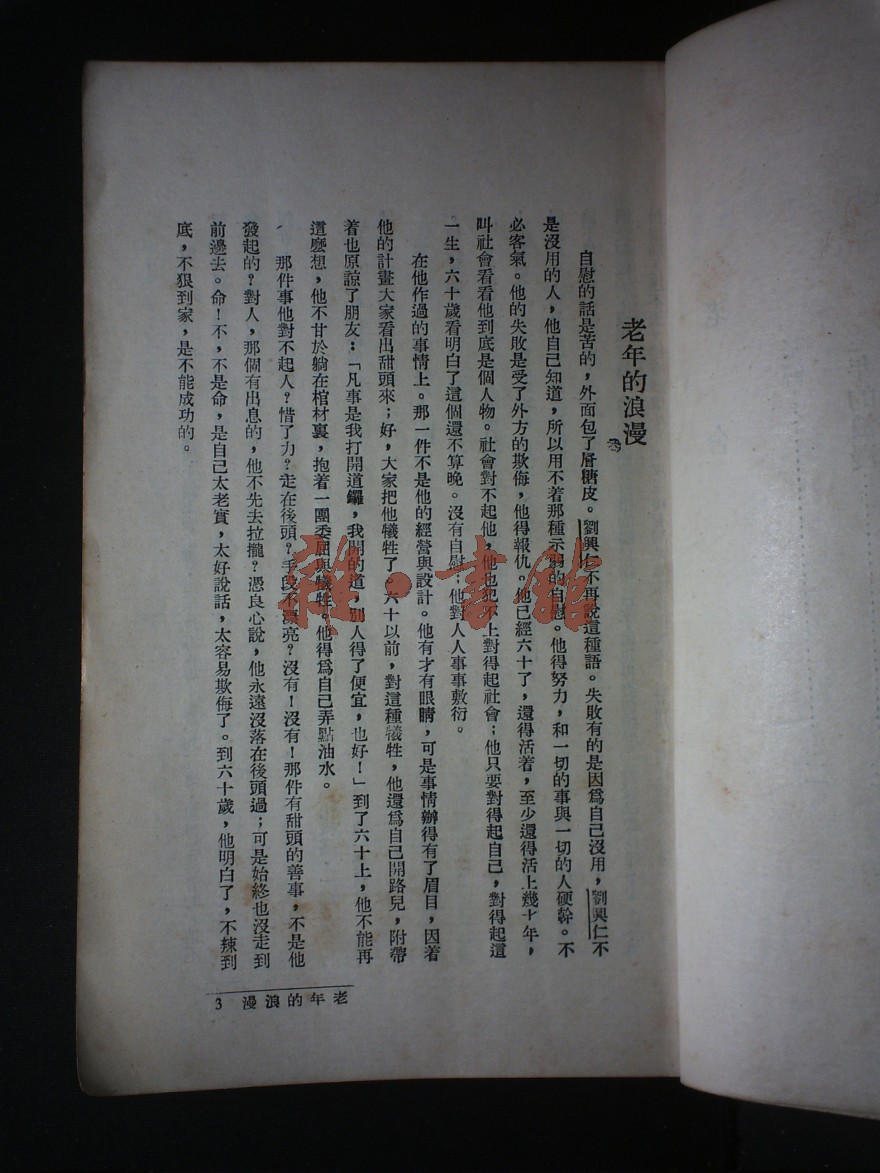 老年的浪漫
自慰的話是苦的，外面包了層糖皮。劉興仁不再說這種語。失敗有的是因爲自己沒用，劉興仁不
是沒用的人，他自己知道，所以用不着那種示弱的自慰。他得努力，和一切的事與一切的人硬幹。不
必客氣。他的失敗是受了外方的欺侮，他得報仇。他已經六十了，還得活着，至少還得活上幾十年，
叫社會看看他到底是個人物。社會對不起他，他也犯不上對得起社會；他只要對得起自己，對得起這
一生，六十歲看明白了這個還不算晚。沒有自慰；他對人人事事敷衍。
在他作過的事情上。那一件不是他的經營與設計。他有才有眼睛，可是事情辦得有了眉目，因着
他的計畫大家看出甜頭來；好，大家把他犧牲了。六十以前，對這種犧牲，他還爲自己開路兒，附帶
着也原諒了朋友：「凡事是我打開道鑼，我開的道，別人得了便宜，也好！」到了六十上，他不能再
這麽想，他不甘於躺在棺材裏，抱着一團委屈與犧牲。他得爲自己弄點油水。
那件事他對不起人？惜了力？走在後頭？手段不漂亮？沒有！沒有！那件有甜頭的善事，不是他
發起的？對人，那個有出息的，他不先去拉攏？憑良心說，他永遠沒落在後頭過；可是始終也沒走到
前邊去。命！不，不是命，是自己太老實，太好說話，太容易欺侮了。到六十歲，他明白了，不辣到
底，不狠到家，是不能成功的。
老年的浪漫 3
雜·書館